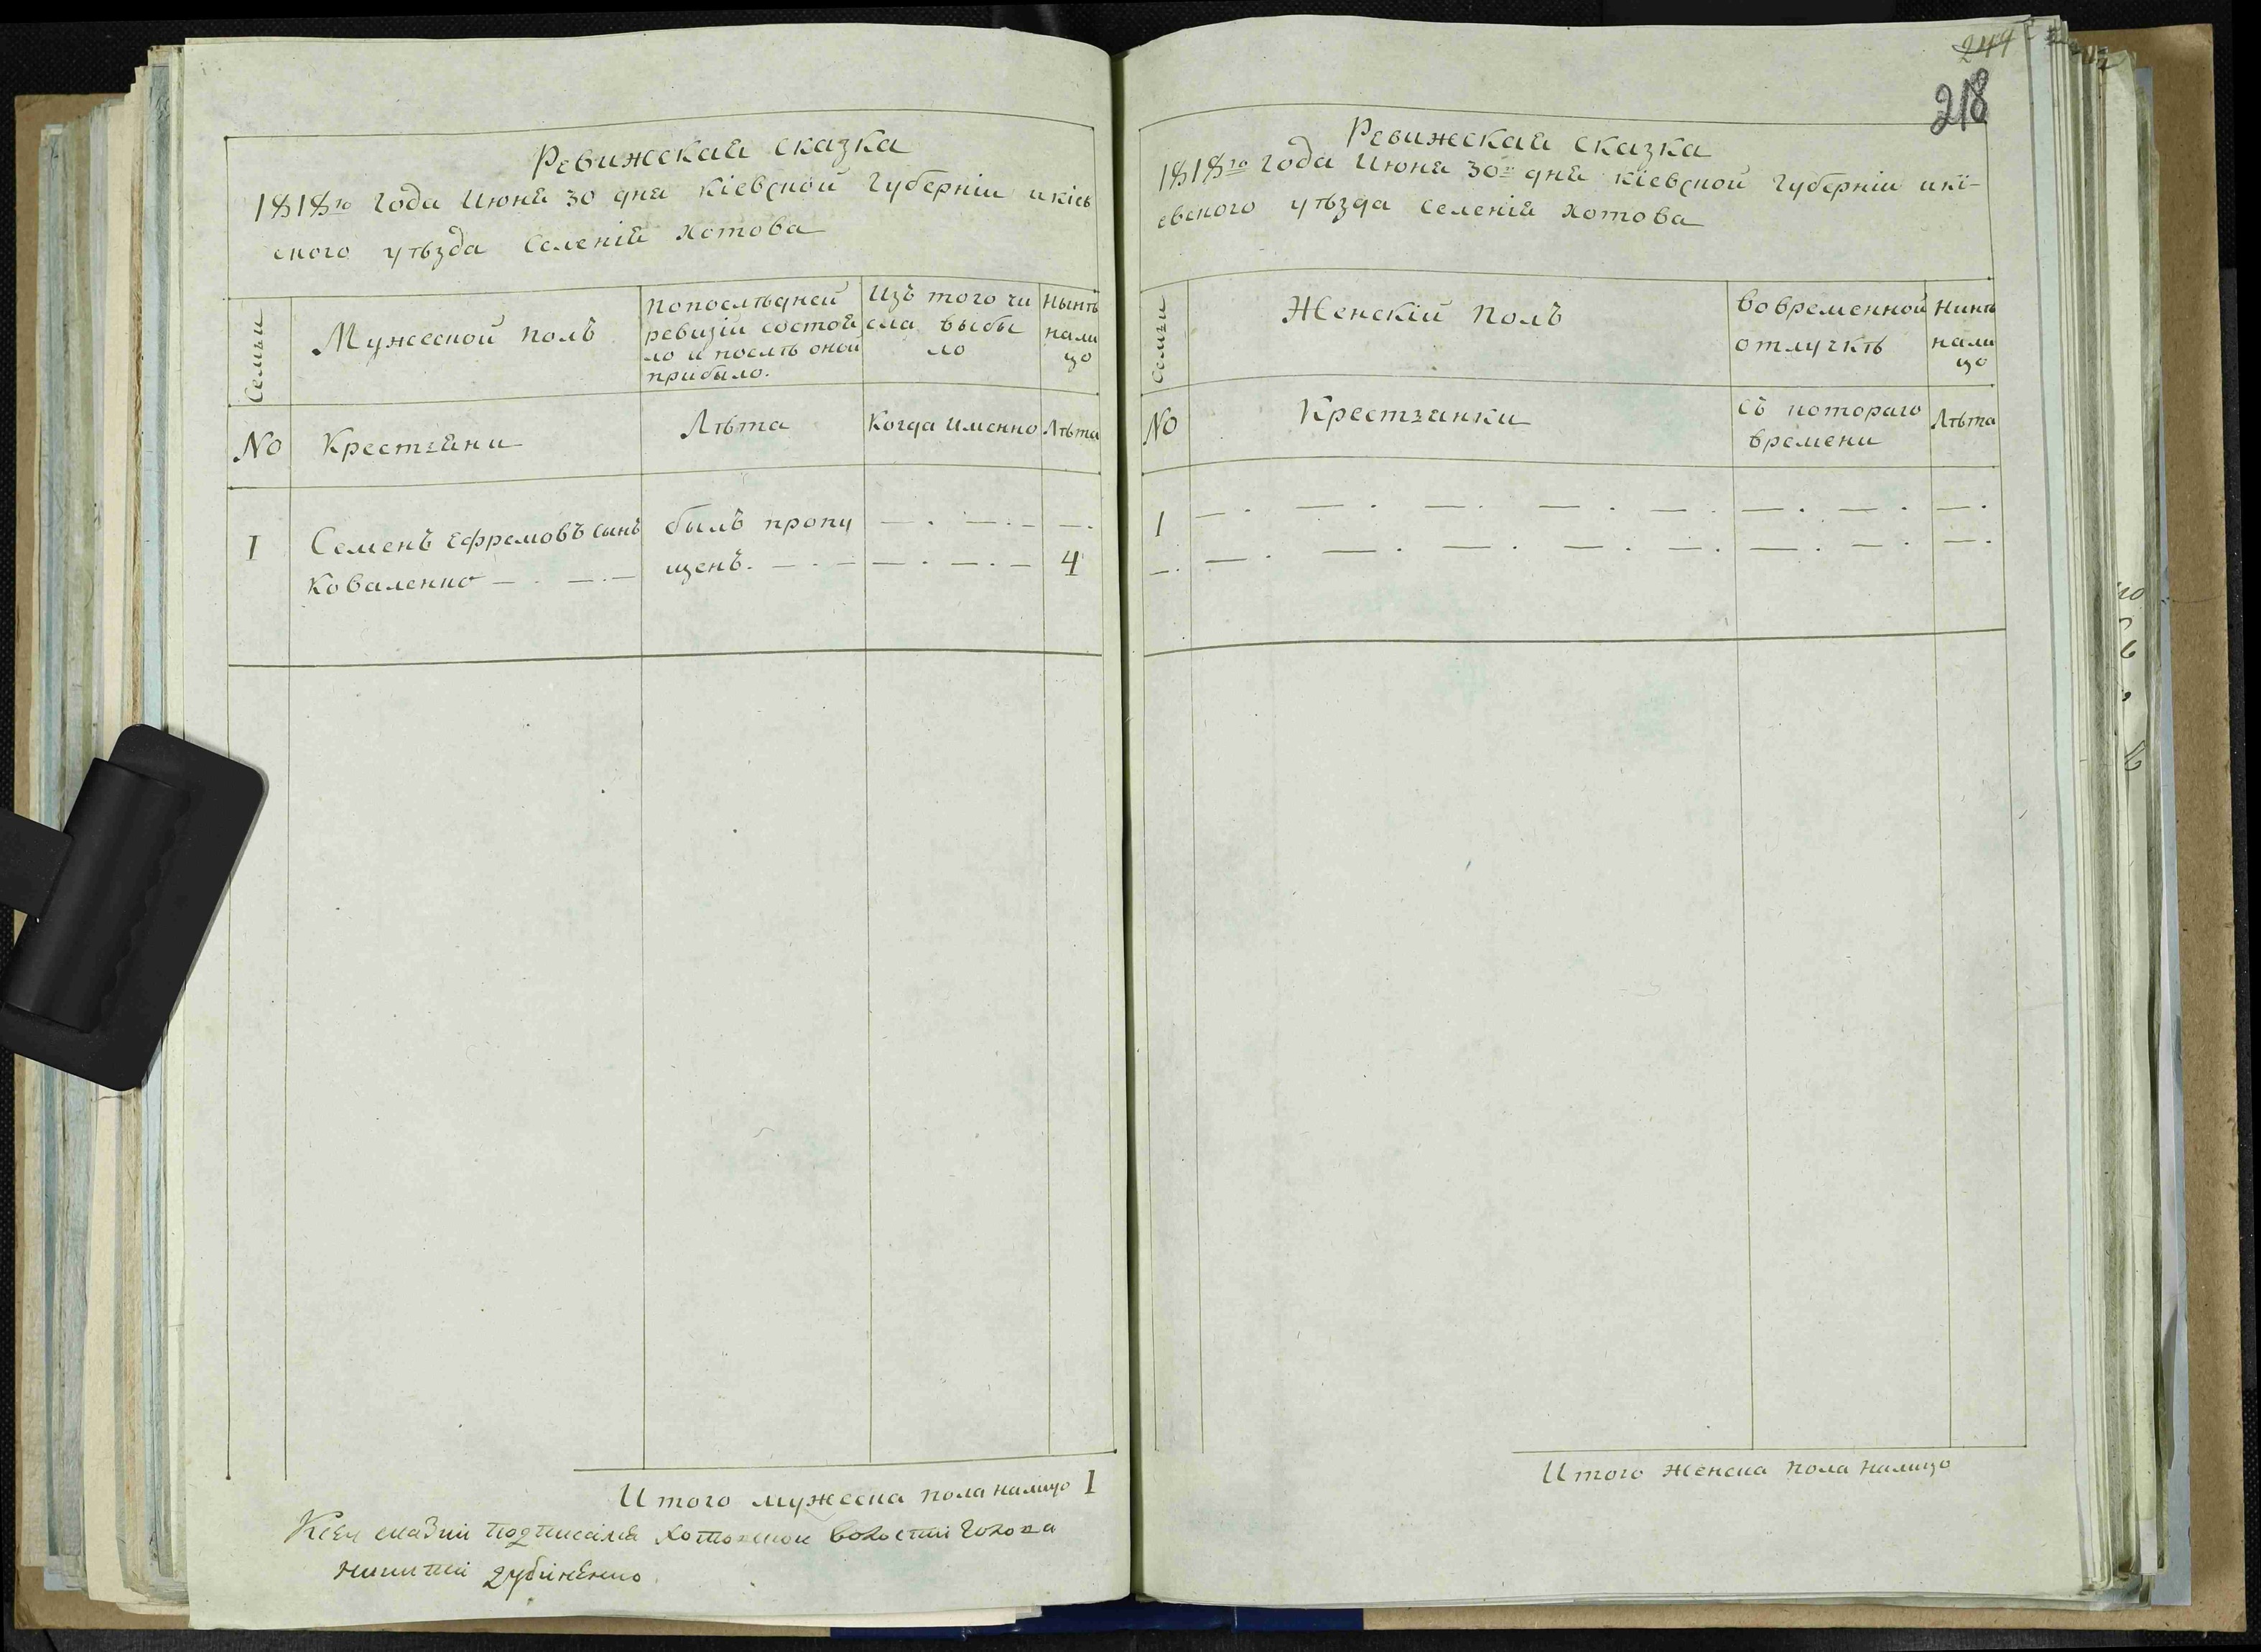 Ревижскаꙗ сказка
1818го года Июнꙗ 30 дня кіевской губерніи и кіев
ского уѣзда Селеніꙗ хотова
Семьи
Мужеской полъ
попослѣдней
ревизіи состоꙗ
ло и послѣ оной
прибыло.
Изъ того чи
сла выбы
ло
Нынѣ
нали
цо
No
Крестьꙗни
Лѣта
Когда Именно
Лѣта
1
Семенъ Ефремовъ сынъ
Коваленко — . — . —
былъ пропу
щенъ. — . —
— . — . —
— . — . —
— .
4
Итого мужеска пола налицо 1
Ксей сказки подписалсꙗ хотовской волости голова
никитій губіненко
249
218
Ревижскаꙗ сказка
1818го года Июнꙗ 30го днꙗ кіевской губерніи и кі-
евского уѣзда селеніꙗ хотова
Семьи
Женскій полъ
вовременной
отлучкѣ
Нинѣ
нали
цо
No
Крестьꙗнки
съ котораго
времени
Лѣта
1
— . — . — . — . — .
— . — . — . — . — .
— . — .
— . — .
— .
— .
Итого женска пола налицо